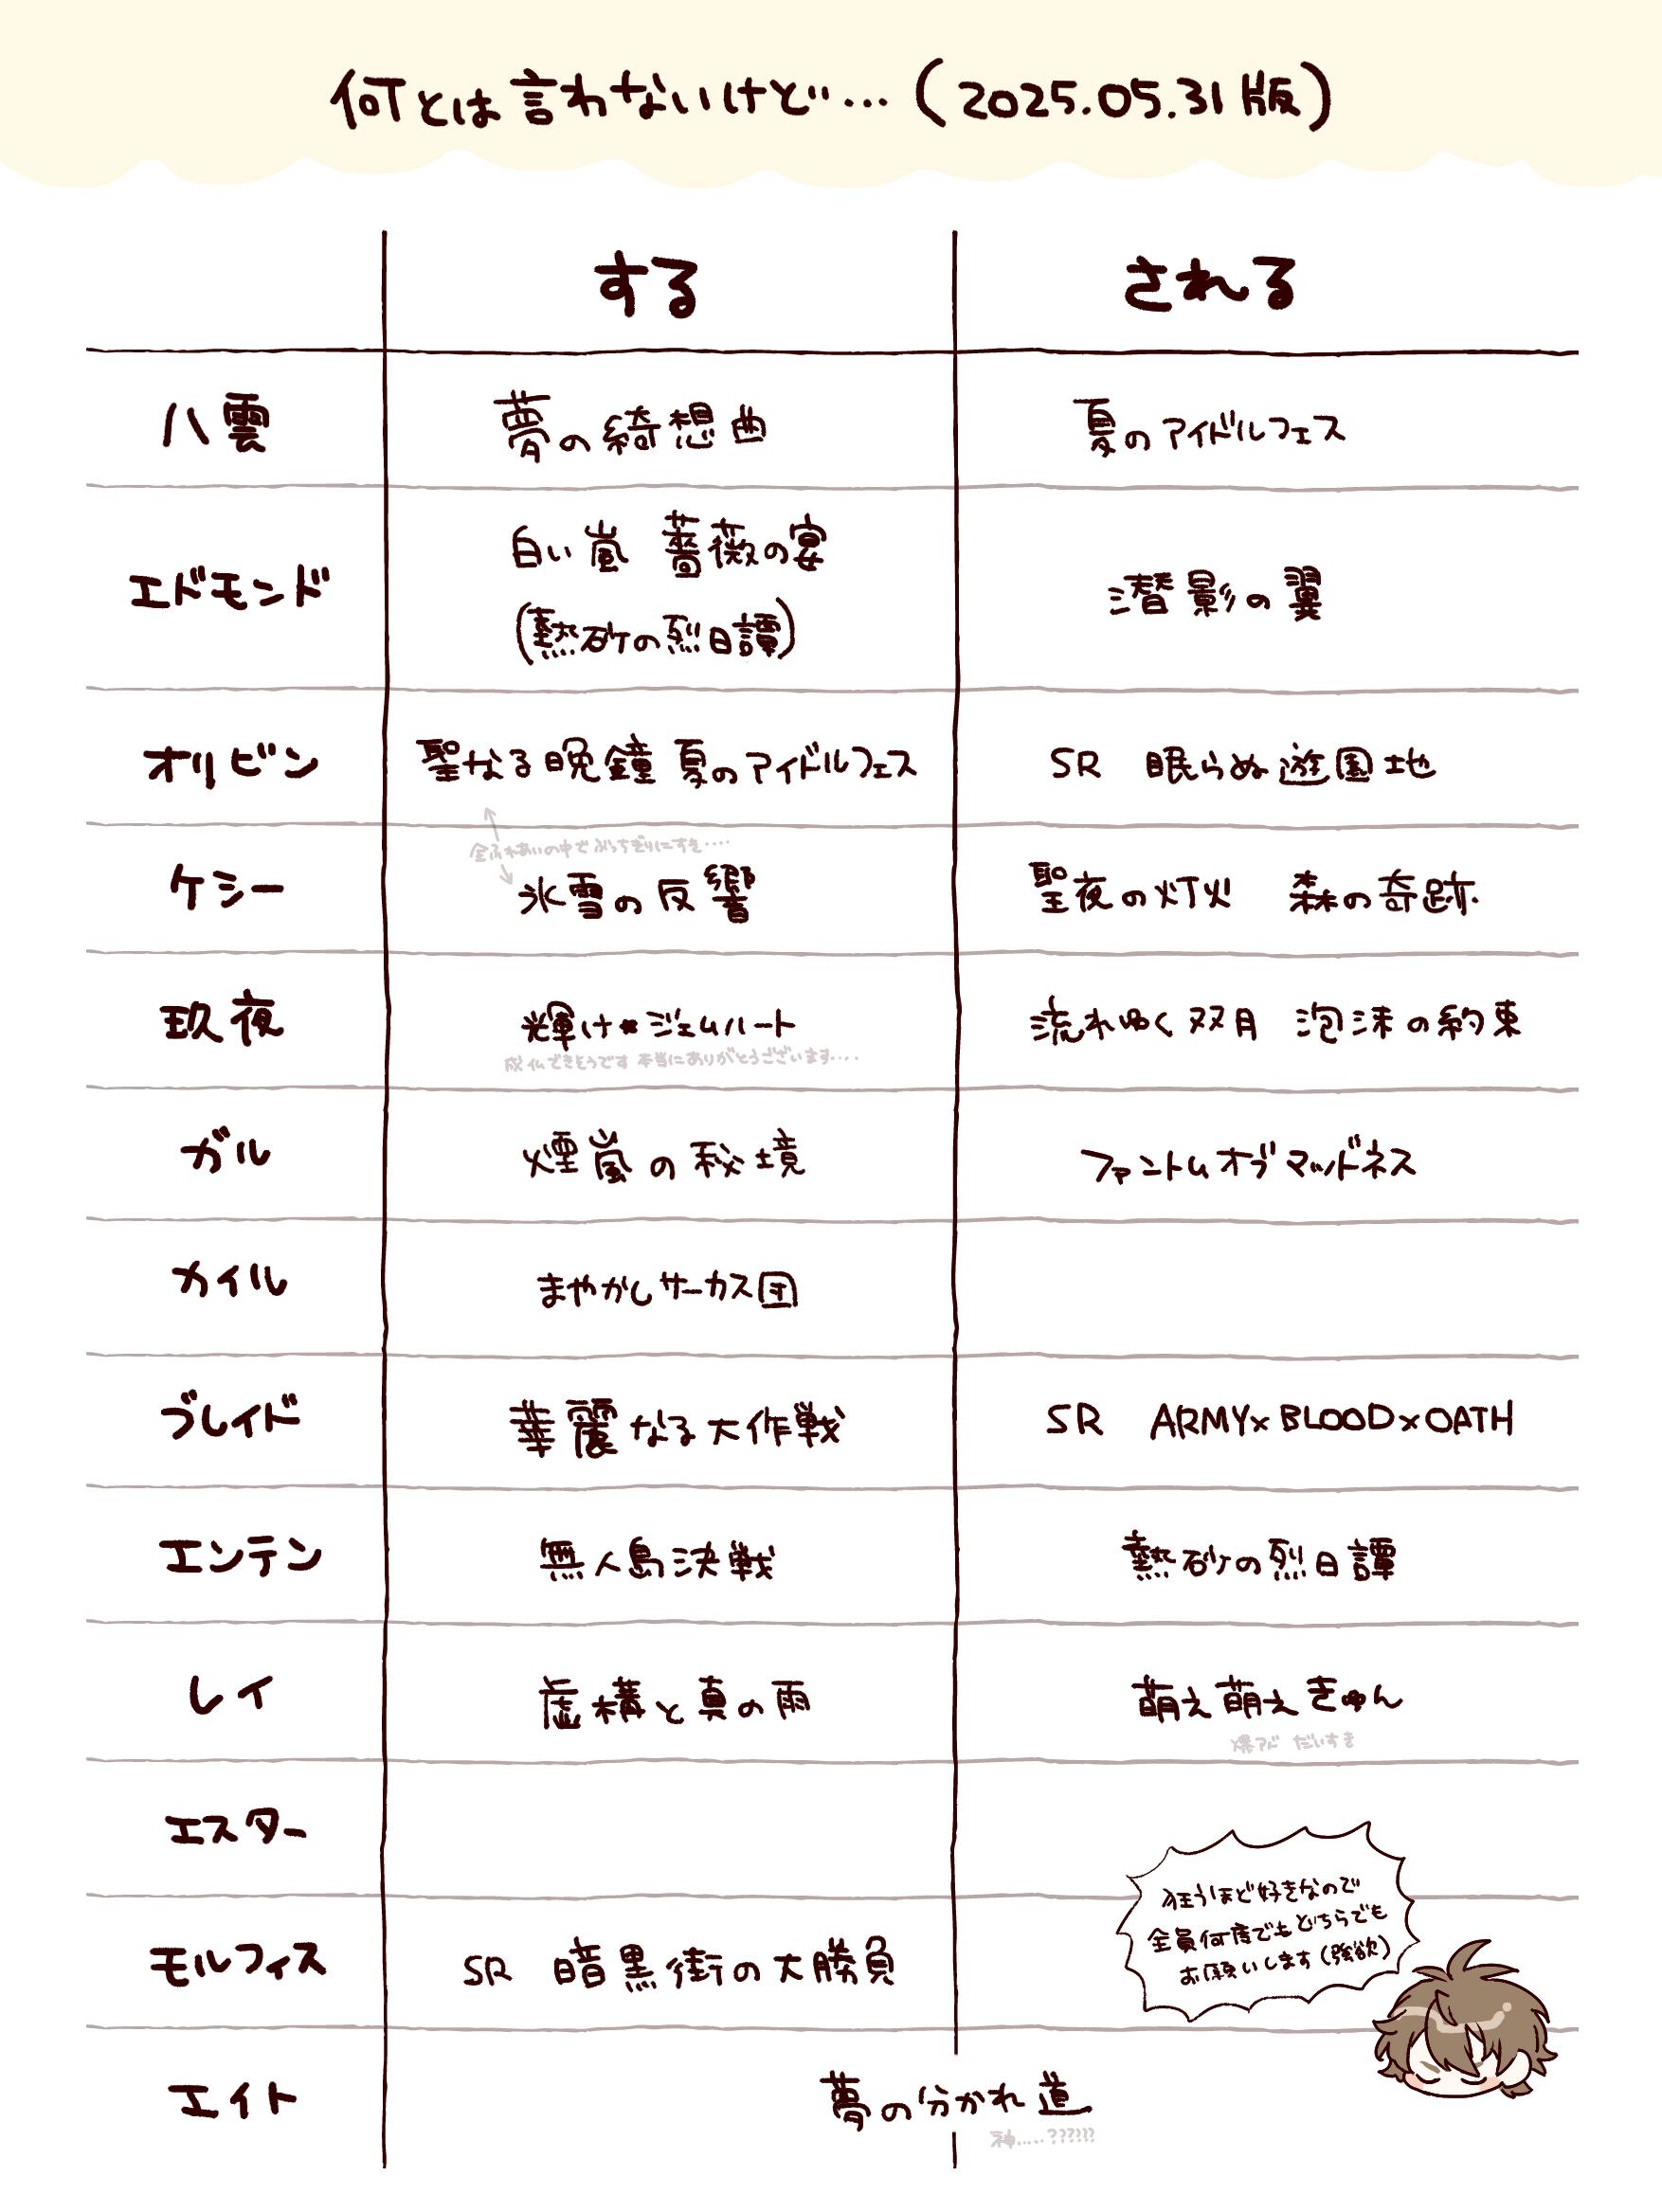 何とは言わないけど…(2025.05.31版)
する　される
八雲　夢の綺想曲　夏のアイドルフェス
エドモンド　白い嵐　薔薇の宴　潜影の翼
(熱砂の烈日譚)
オリビン　聖なる晩鐘　夏のアイドルフェス　SR　眠らぬ遊園地
全ふれあいの中でぶっちぎりにすき‥‥
ケシー　氷雪の反響　聖夜の灯火　森の奇跡
玖夜　輝け★ジェムハート　流れゆく双月　泡沫の約束
成仏できそうです 本当にありがとうございます‥‥
ガル　煙嵐の秘境　ファントムオブマッドネス
カイル　まやかしサーカス団
ブレイド　華麗なる大作戦　SR　ARMY×BLOOD×OATH
エンテン　無人島決戦　熱砂の烈日譚
レイ　虚構と真の雨　萌え萌えきゅん
爆アド　だいすき
エスター
狂うほど好きなので
全員何度でもどちらでも
お願いします(強欲)
モルフィス　SR　暗黒街の大勝負
エイト　夢の分かれ道
神‥‥‥??????